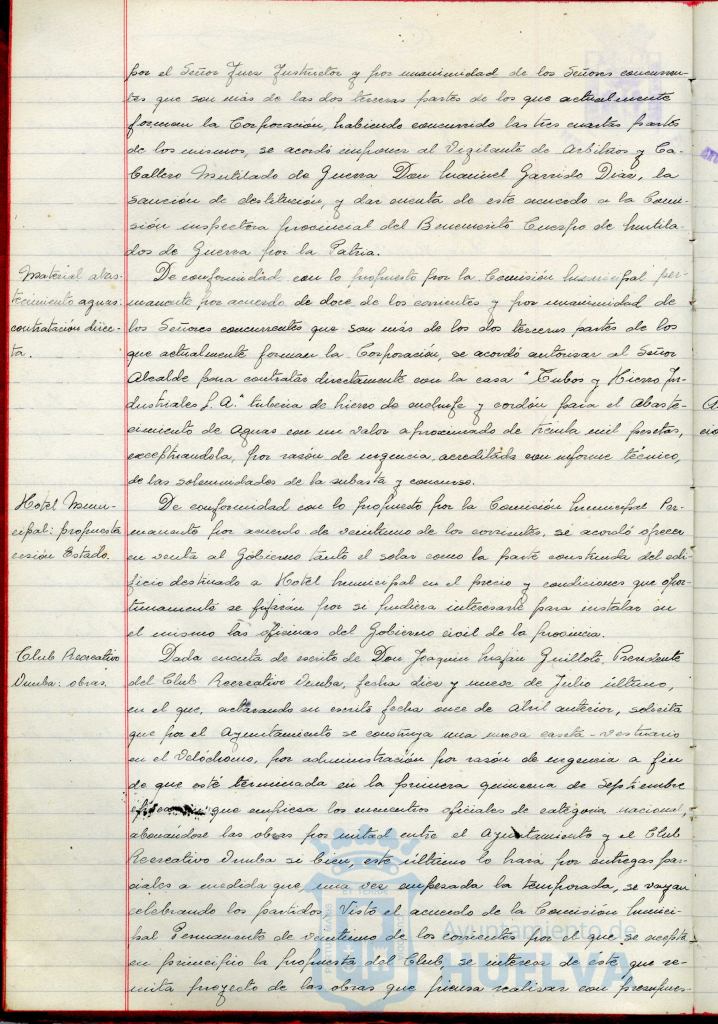 por el Señor Juez Instructor y por unanimidad de los Señores concurren-
tes que son más de las dos terceras partes de los que actualmente
forman la Corporación, habiendo concurrido las tres cuartas partes
de los mismos, se acordó imponer al Vigilante de Arbitrios y Ca-
ballero Mutilado de Guerra Don Manuel Garrido Díaz, la
sanción de destitución, y dar cuenta de este acuerdo a la Comi-
sión inspectora provincial del Benemérito Cuerpo de Mutila-
dos de Guerra por la Patria.
Material abas-
tecimiento aguas:
contratación direc-
ta.
De conformidad con lo propuesto por la Comisión Municipal per-
manente por acuerdo de doce de los corrientes y por unanimidad de
los Señores concurrentes que son más de las dos terceras partes de los
que actualmente forman la Corporación, se acordó autorizar al Señor
Alcalde para contratar directamente con la casa "Tubos y Hierro In-
dustriales S. A." tubería de hierro de enchufe y cordón para el Abaste-
cimiento de Aguas con un valor aproximado de treinta mil pesetas,
exceptuándola, por razón de urgencia, acreditada con informe técnico,
de las solemnidades de la subasta y concurso.
Hotel Muni-
cipal: propuesta
cesión Estado.
De conformidad con lo propuesto por la Comisión Municipal Per-
manente por acuerdo de veintiuno de los corrientes, se acordó ofrecer
en venta al Gobierno tanto el solar como la parte construida del edi-
ficio destinado a Hotel Municipal en el precio y condiciones que opor-
tunamente se fijarán por si pudiera interesarle para instalar en
el mismo las oficinas del Gobierno civil de la provincia.
Club Recreativo
Onuba: obras.
Dada cuenta de escrito de Don Joaquín Guillote, Presidente
del Club Recreativo Onuba, fecha diez y nueve de Julio último,
en el que, aclarando su escrito fecha once de Abril anterior, solicita
que por el Ayuntamiento se construya una nueva caseta-vestuario
en el Velódromo, por administración por razón de urgencia a fin
de que esté terminada en la primera quincena de Septiembre
que empieza los encuentros oficiales de categoría nacional,
abonándose las obras por mitad entre el Ayuntamiento y el Club
Recreativo Onuba si bien, este último lo hará por entregas par-
ciales a medida que una vez empezada la temporada, se vayan
celebrando los partidos. Visto el acuerdo de la Comisión Munici-
pal Permanente de veintiuno de los corrientes por el que se acepta
en principio la propuesta del Club, se interesa de este que re-
mita proyecto de las obras que piensa realizar con presupues-
Ayuntamiento de
HUELVA